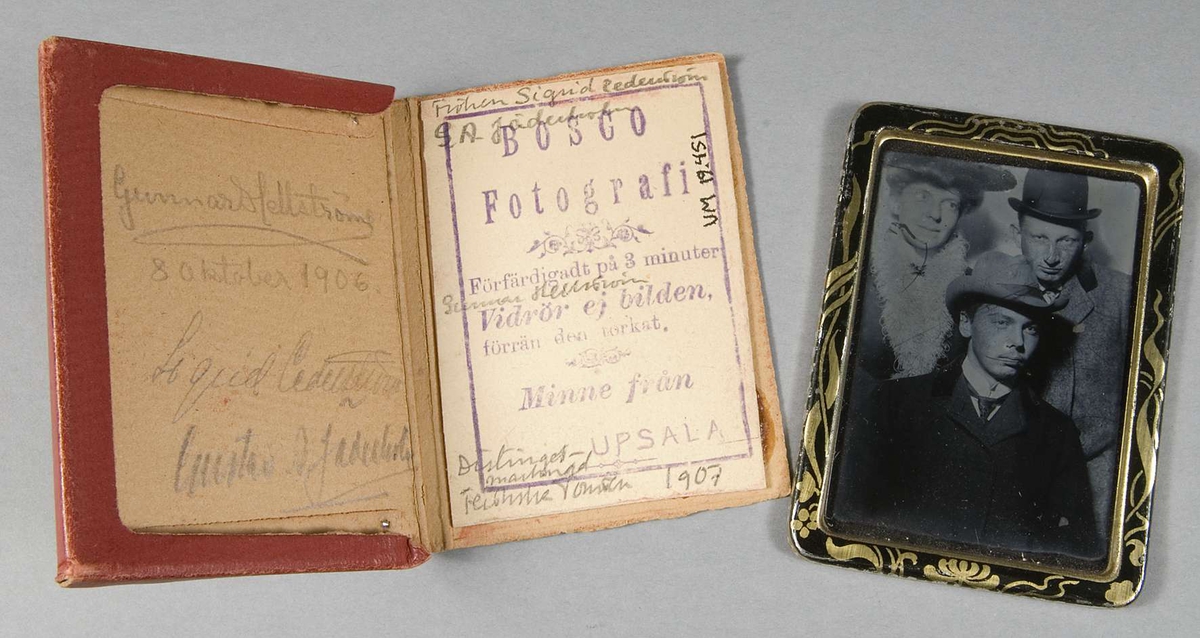 Gunnar Hellström
8 Oktober 1906.
Sigrid Cederström
Gustav A. Jäderholm
Fröken Sigrid Cederström
G A Jäderholm
BOSCO
Fotografi
Förfärdigadt på 3 minuter
Gunnar Hellström
Vidrör ej bilden,
förrän den torkat.
Minne från
UPSALA
Distingsmarknad
1907
UM 19.451